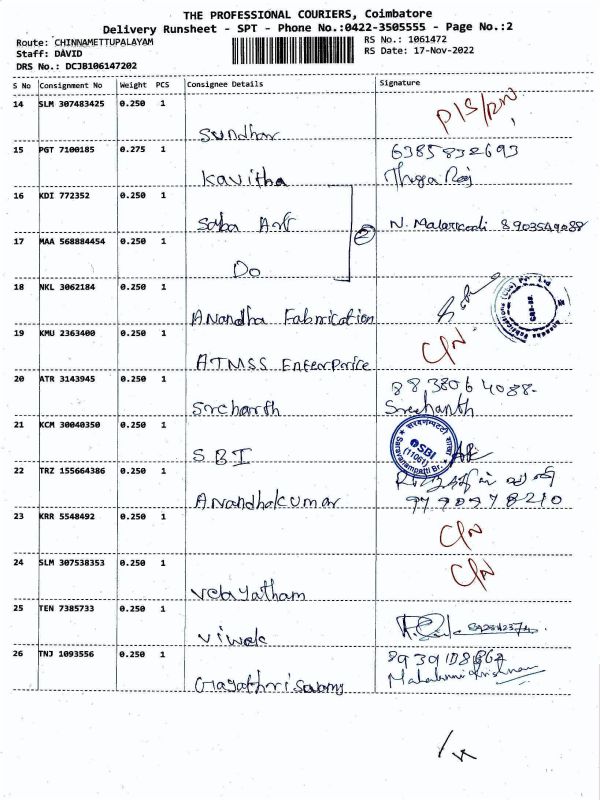 THE PROFESSIONAL COURIERS, Coimbatore
Delivery Runsheet - SPT - Phone No.:0422-3505555 - Page No.:2
Route: CHINNAMETTUPALAYAM
RS No.: 1061472
Staff: DAVID
RS Date: 17-Nov-2022
DRS No.: DCJB106147202
S No Consignment No Weight PCS Consignee Details Signature
14 SLM 307483425 0.250 1
Sundhar
15 PGT 7100185 0.275 1 6385832693
Kavitha
16 KDI 772352 0.250 1
2 N. 8903549088
17 MAA 568884454 0.250 1
Do
18 NKL 3062184 0.250 1
Anandha Fabrication
19 KMU 2363400 0.250 1 C/N
ATMSS Enterprice
20 ATR 3143945 0.250 1 8838064088
Srcharth Sreehanth
21 KCM 30040350 0.250 1
SBI SBI (11061) Saravanampatti Br.
22 TRZ 155664386 0.250 1
Anandhakumar 9790978210
23 KRR 5548492 0.250 1 C/N
24 SLM 307538353 0.250 1 C/N
Velayatham
25 TEN 7385733 0.250 1
Viwek
26 TNJ 1093556 0.250 1
Gayathri